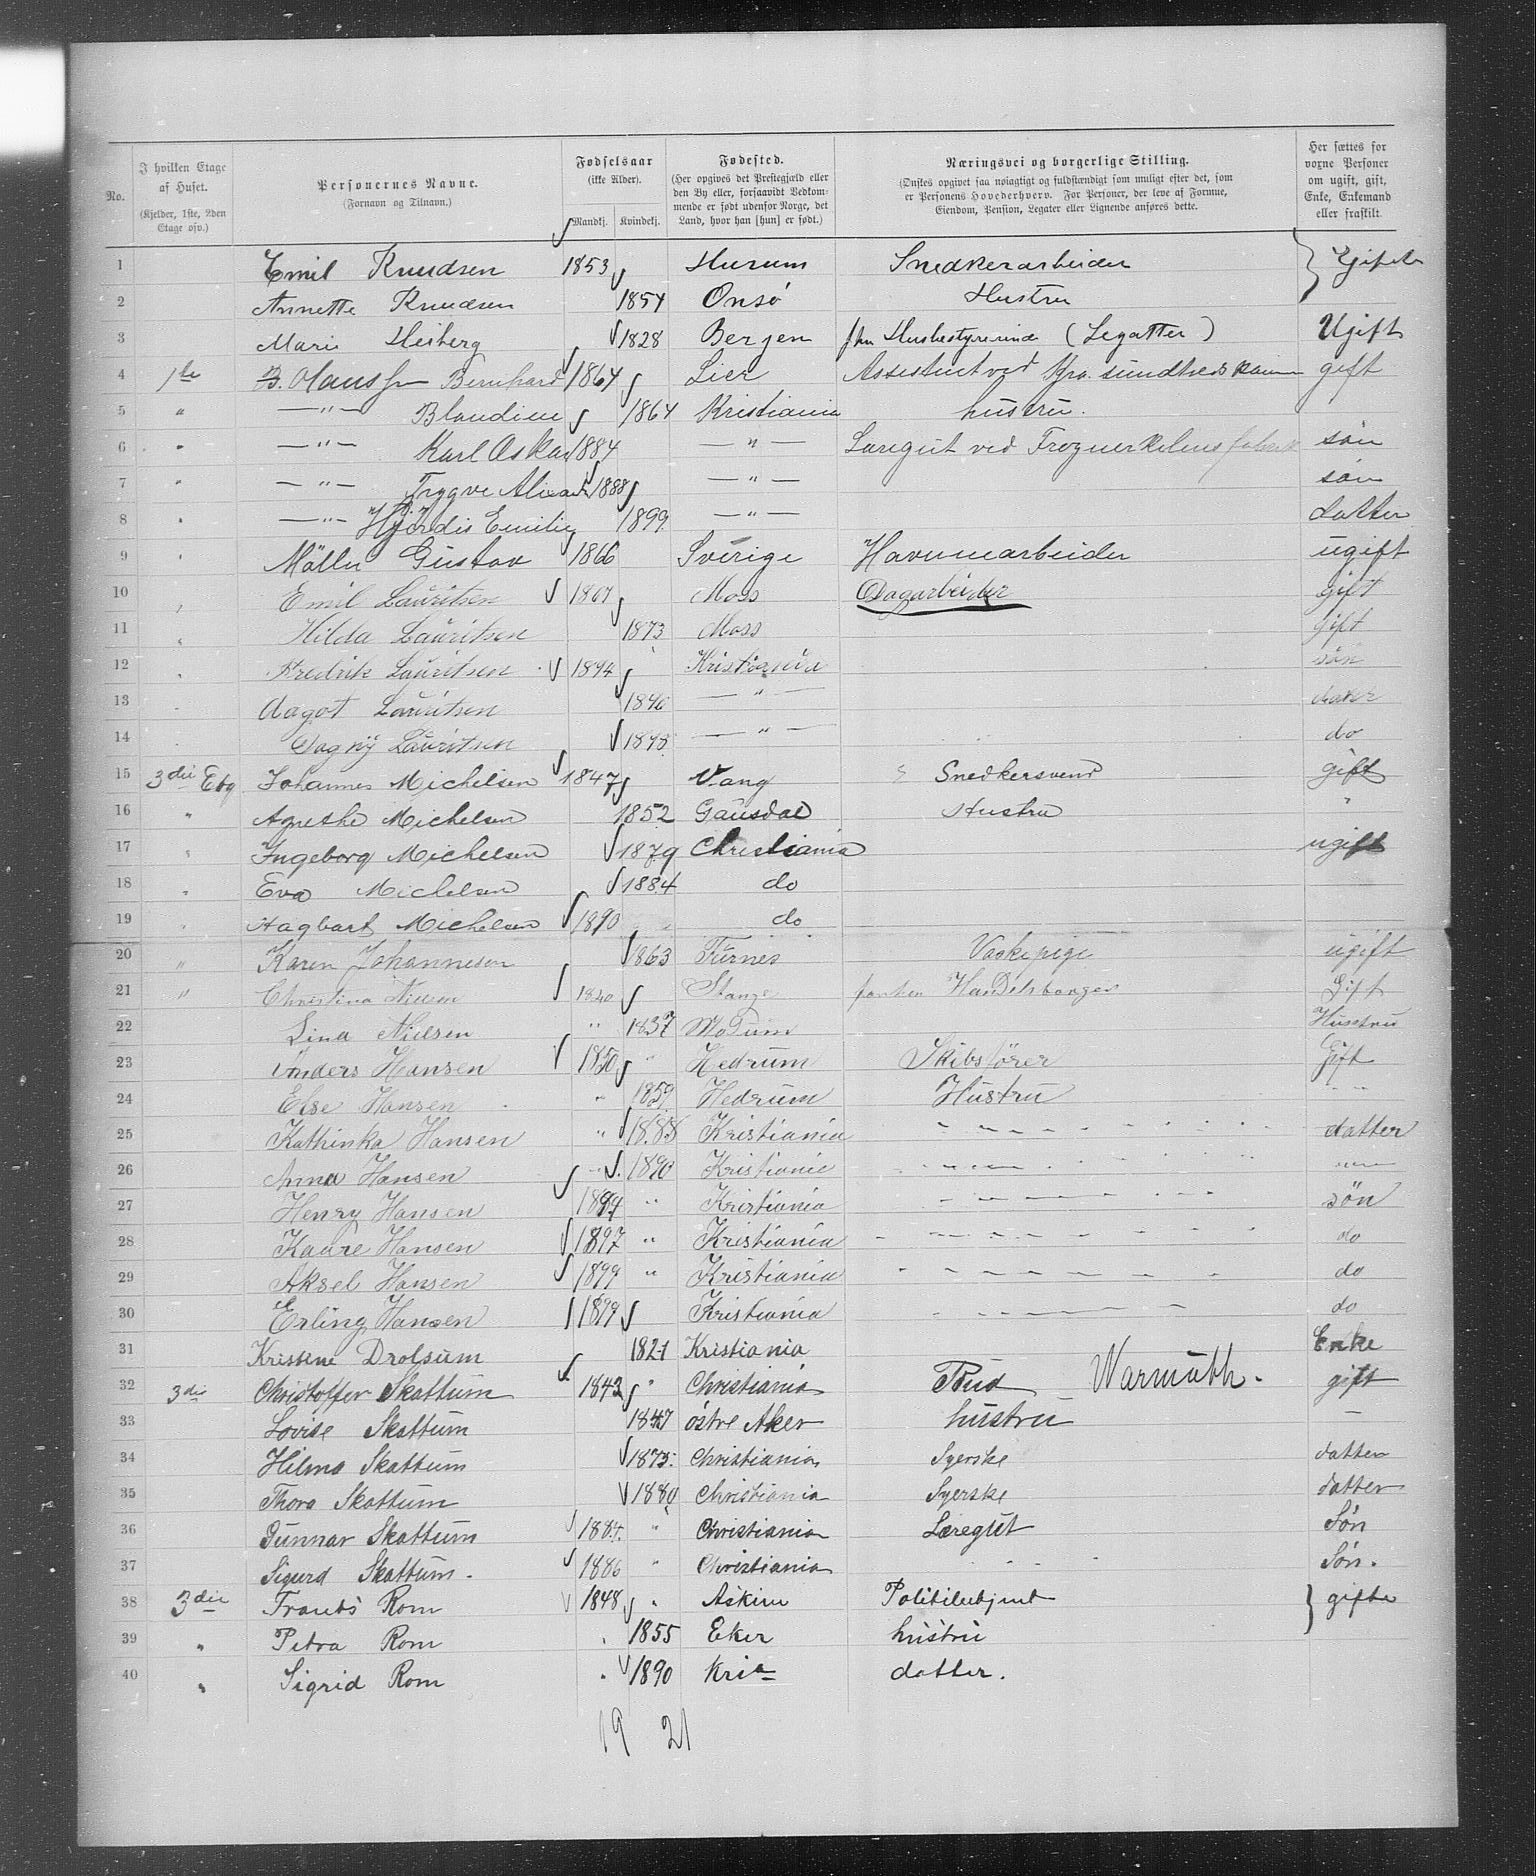 No.
I hvilken Etage af Huset.
(Kjelder, 1ste, 2den Etage osv.)
Personernes Navne.
(Fornavn og Tilnavn.)
Fødselsaar
(ikke Alder).
Mandkj. Kvindekj.
Fødested.
(Her opgives det Prestegjæld eller den By eller, forsaavidt Vedkommende er født udenfor Norge, det Land, hvor han [hun] er født.)
Næringsvei og borgerlige Stilling.
(Ønskes opgivet saa nøiagtigt og fuldstændigt som muligt efter det, som er Personens Hovederhverv. For Personer, der leve af Formue, Eiendom, Pension, Legater eller Lignende anføres dette.
Her sættes for voxne Personer om ugift, gift, Enke, Enkemand eller fraskilt.
1 Emil Knudsen 1853 Hurum Snedkerarbeider } Gifte
2 Annette Knudsen 1854 Onsö Hustru
3 Marie Heiberg 1828 Bergen Husbestyrerinde (Legatter) Ugift
4 1ste B. Olaussen Bernhard 1864 Lier Assistent ved Kra. sundheds kom gift
5 " —"— Blandine 1864 Kristiania hustru.
6 " —"— Karl Oskar 1884 —"— Læregut ved Frognerkilens fabrik sön
7 " —"— Trygve 1888 —"— sön
8 " —"— Hjördis Emilie 1899 —"— Datter
9 " Möller Gustav 1866 Sverige Havnearbeider ugift
10 " Emil Lauritsen 1867 Moss Dagarbeider gift
11 " Hilda Lauritsen 1873 Moss Gift
12 " Fredrik Lauritsen 1894 Kristiania sön
13 Aagot Lauritsen —"—
14 Dagny Lauritsen 1898 —"— do
15 3die Etg Johannes Michelsen 1847 Vang Snedkersvend gift
16 " Agnethe Michelsen 1852 Gausdal Hustru "
17 " Ingeborg Michelsen 1879 Christiania ugift
18 " Eva Michelsen 1884 do
19 " Hagbart Michelsen 1890 do
20 " Karen Johannesen 1863 Furnes Vaskepige ugift
21 " Christina Nielsen 1840 Stange Handelsborger Gift
22 Lina Nielsen " 1837 Modum Hustru
23 Anders Hansen 1850 " Hedrum Skibsförer Gift
24 Else Hansen " 1859 Hedrum Hustru " "
25 Kathinka Hansen " 1888 Kristiania datter
26 Anna Hansen " 1890 Kristiania
27 Henry Hansen 1894 " Kristiania sön
28 Kaare Hansen 1897 " Kristiania do
29 Aksel Hansen 1899 " Kristiania do
30 Erling Hansen 1899 Kristiania do
31 Kristine Drolsum 1821 Kristiania Enke
32 3die Christoffer Skattum 1842 " Christiania Bud Warmuth. gift
33 Lovise Skattum 1847 östre Aker hustru —
34 Hilma Skattum 1875. Christiania Syerske datter
35 Thora Skattum 1880 Christiania Syerske datter
36 Gunnar Skattum 1884. " Christiania Læregut Sön
37 Sigurd Skattum. 1886 " Christiania Sön.
38 3die Frants Rom 1848 " Askim Politibetjent } gifte
39 " Petra Rom " 1855 Eker hustru
40 " Sigrid Rom " 1890 Kria datter.
19 21